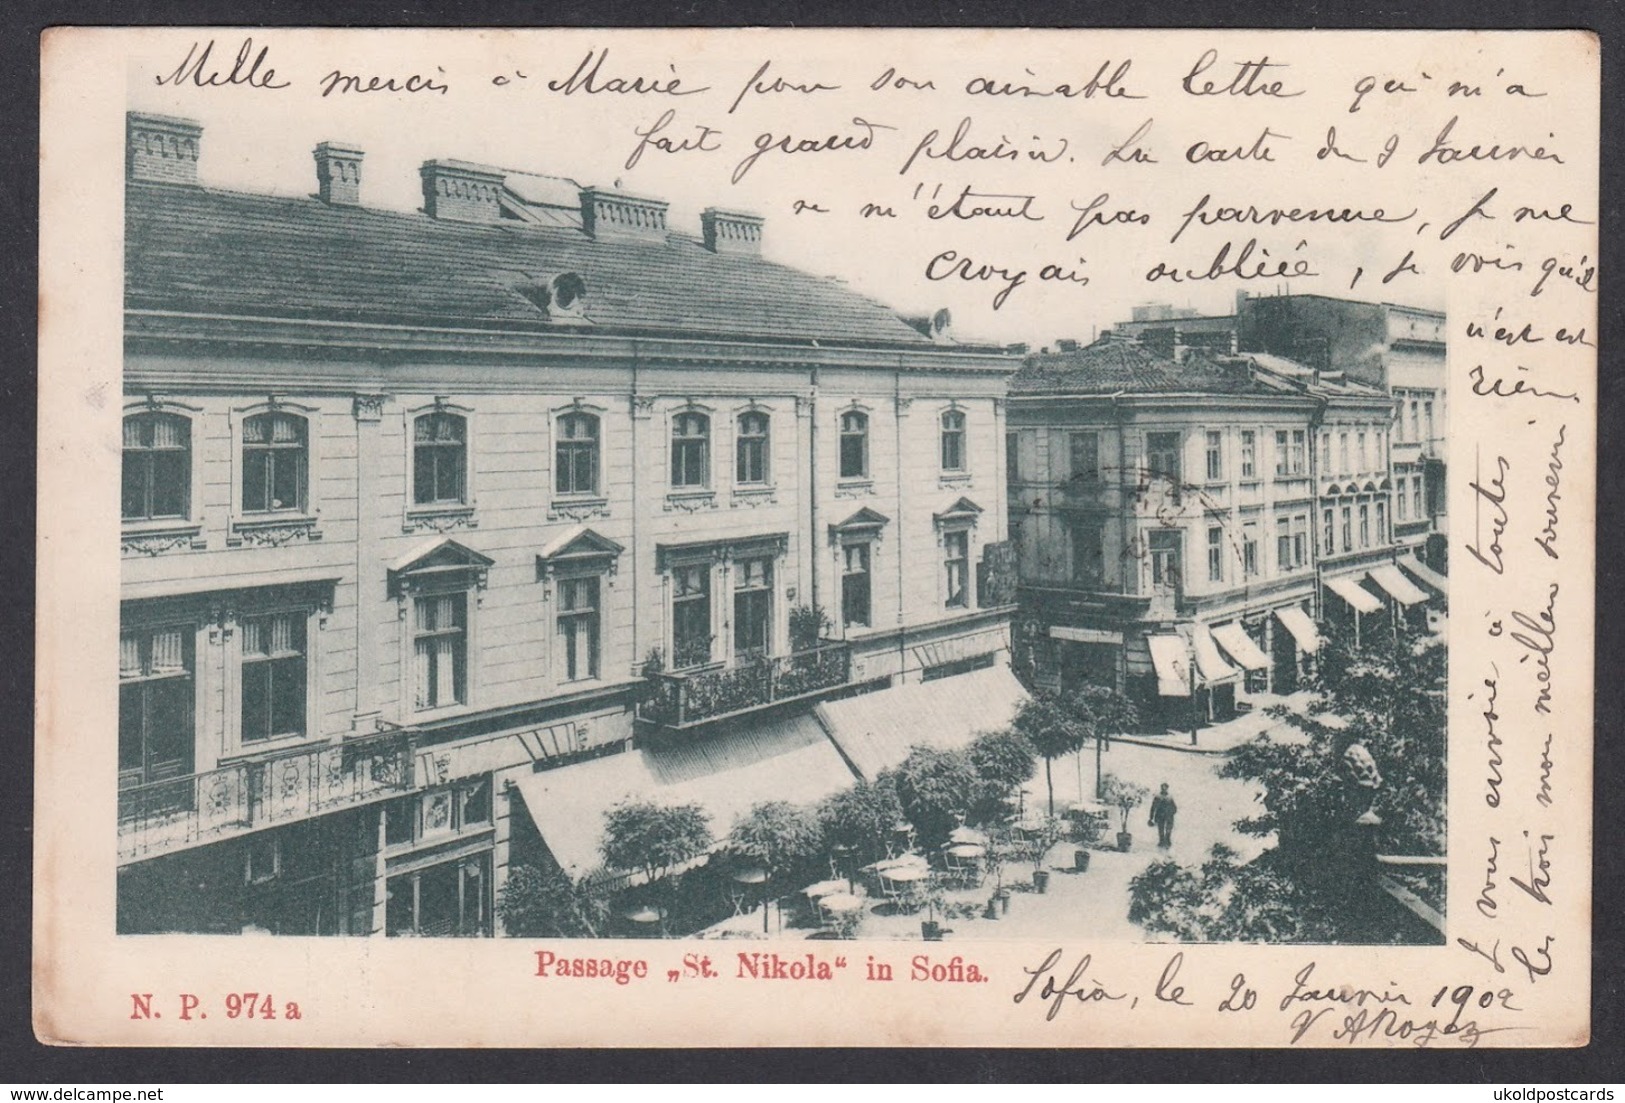 Mille mercis à Marie pour son aimable lettre qui m'a
fait grand plaisir. La carte du 9 Janvier
ne m'étant pas parvenue, je me
croyais oubliée, je vois qu'il
n'est est
rien.
J vous envoie à toutes
les trois mon meilleur souvenir
Passage „St. Nikola“ in Sofia.
Sofia, le 20 Janvier 1902
N. P. 974 a
delcampe.net
ukoldpostcards